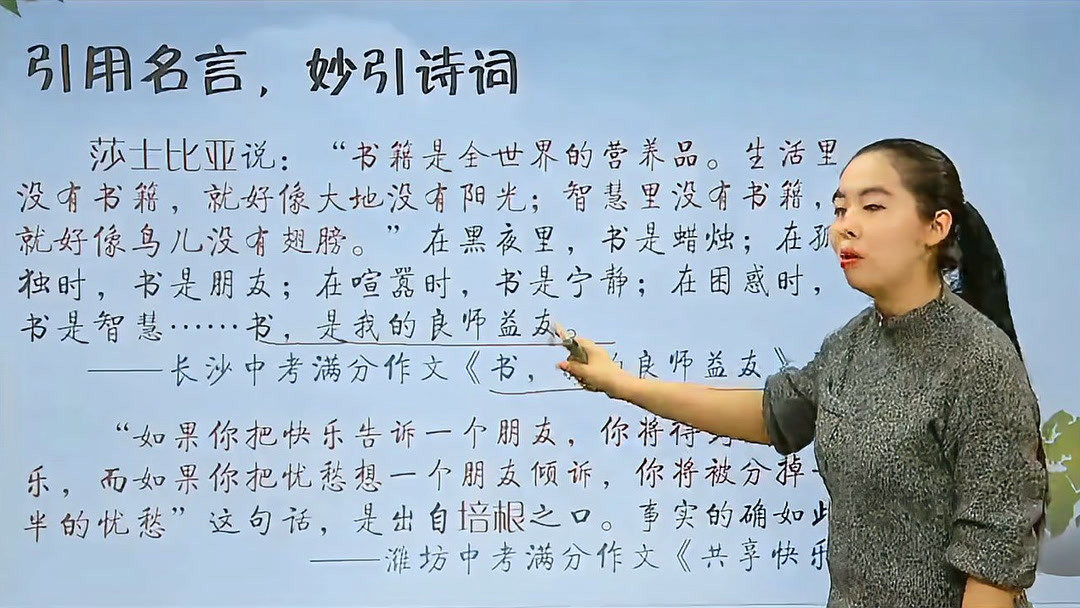 引用名言，妙引诗词
莎士比亚说：“书籍是全世界的营养品。生活里
没有书籍，就好像大地没有阳光；智慧里没有书籍，
就好像鸟儿没有翅膀。”在黑夜里，书是蜡烛；在孤
独时，书是朋友；在喧嚣时，书是宁静；在困惑时，
书是智慧……书，是我的良师益友。
——长沙中考满分作文《书，的良师益友》
“如果你把快乐告诉一个朋友，你将得
乐，而如果你把忧愁想一个朋友倾诉，你将被分掉
半的忧愁”这句话，是出自培根之口。事实的确如此
——潍坊中考满分作文《共享快乐